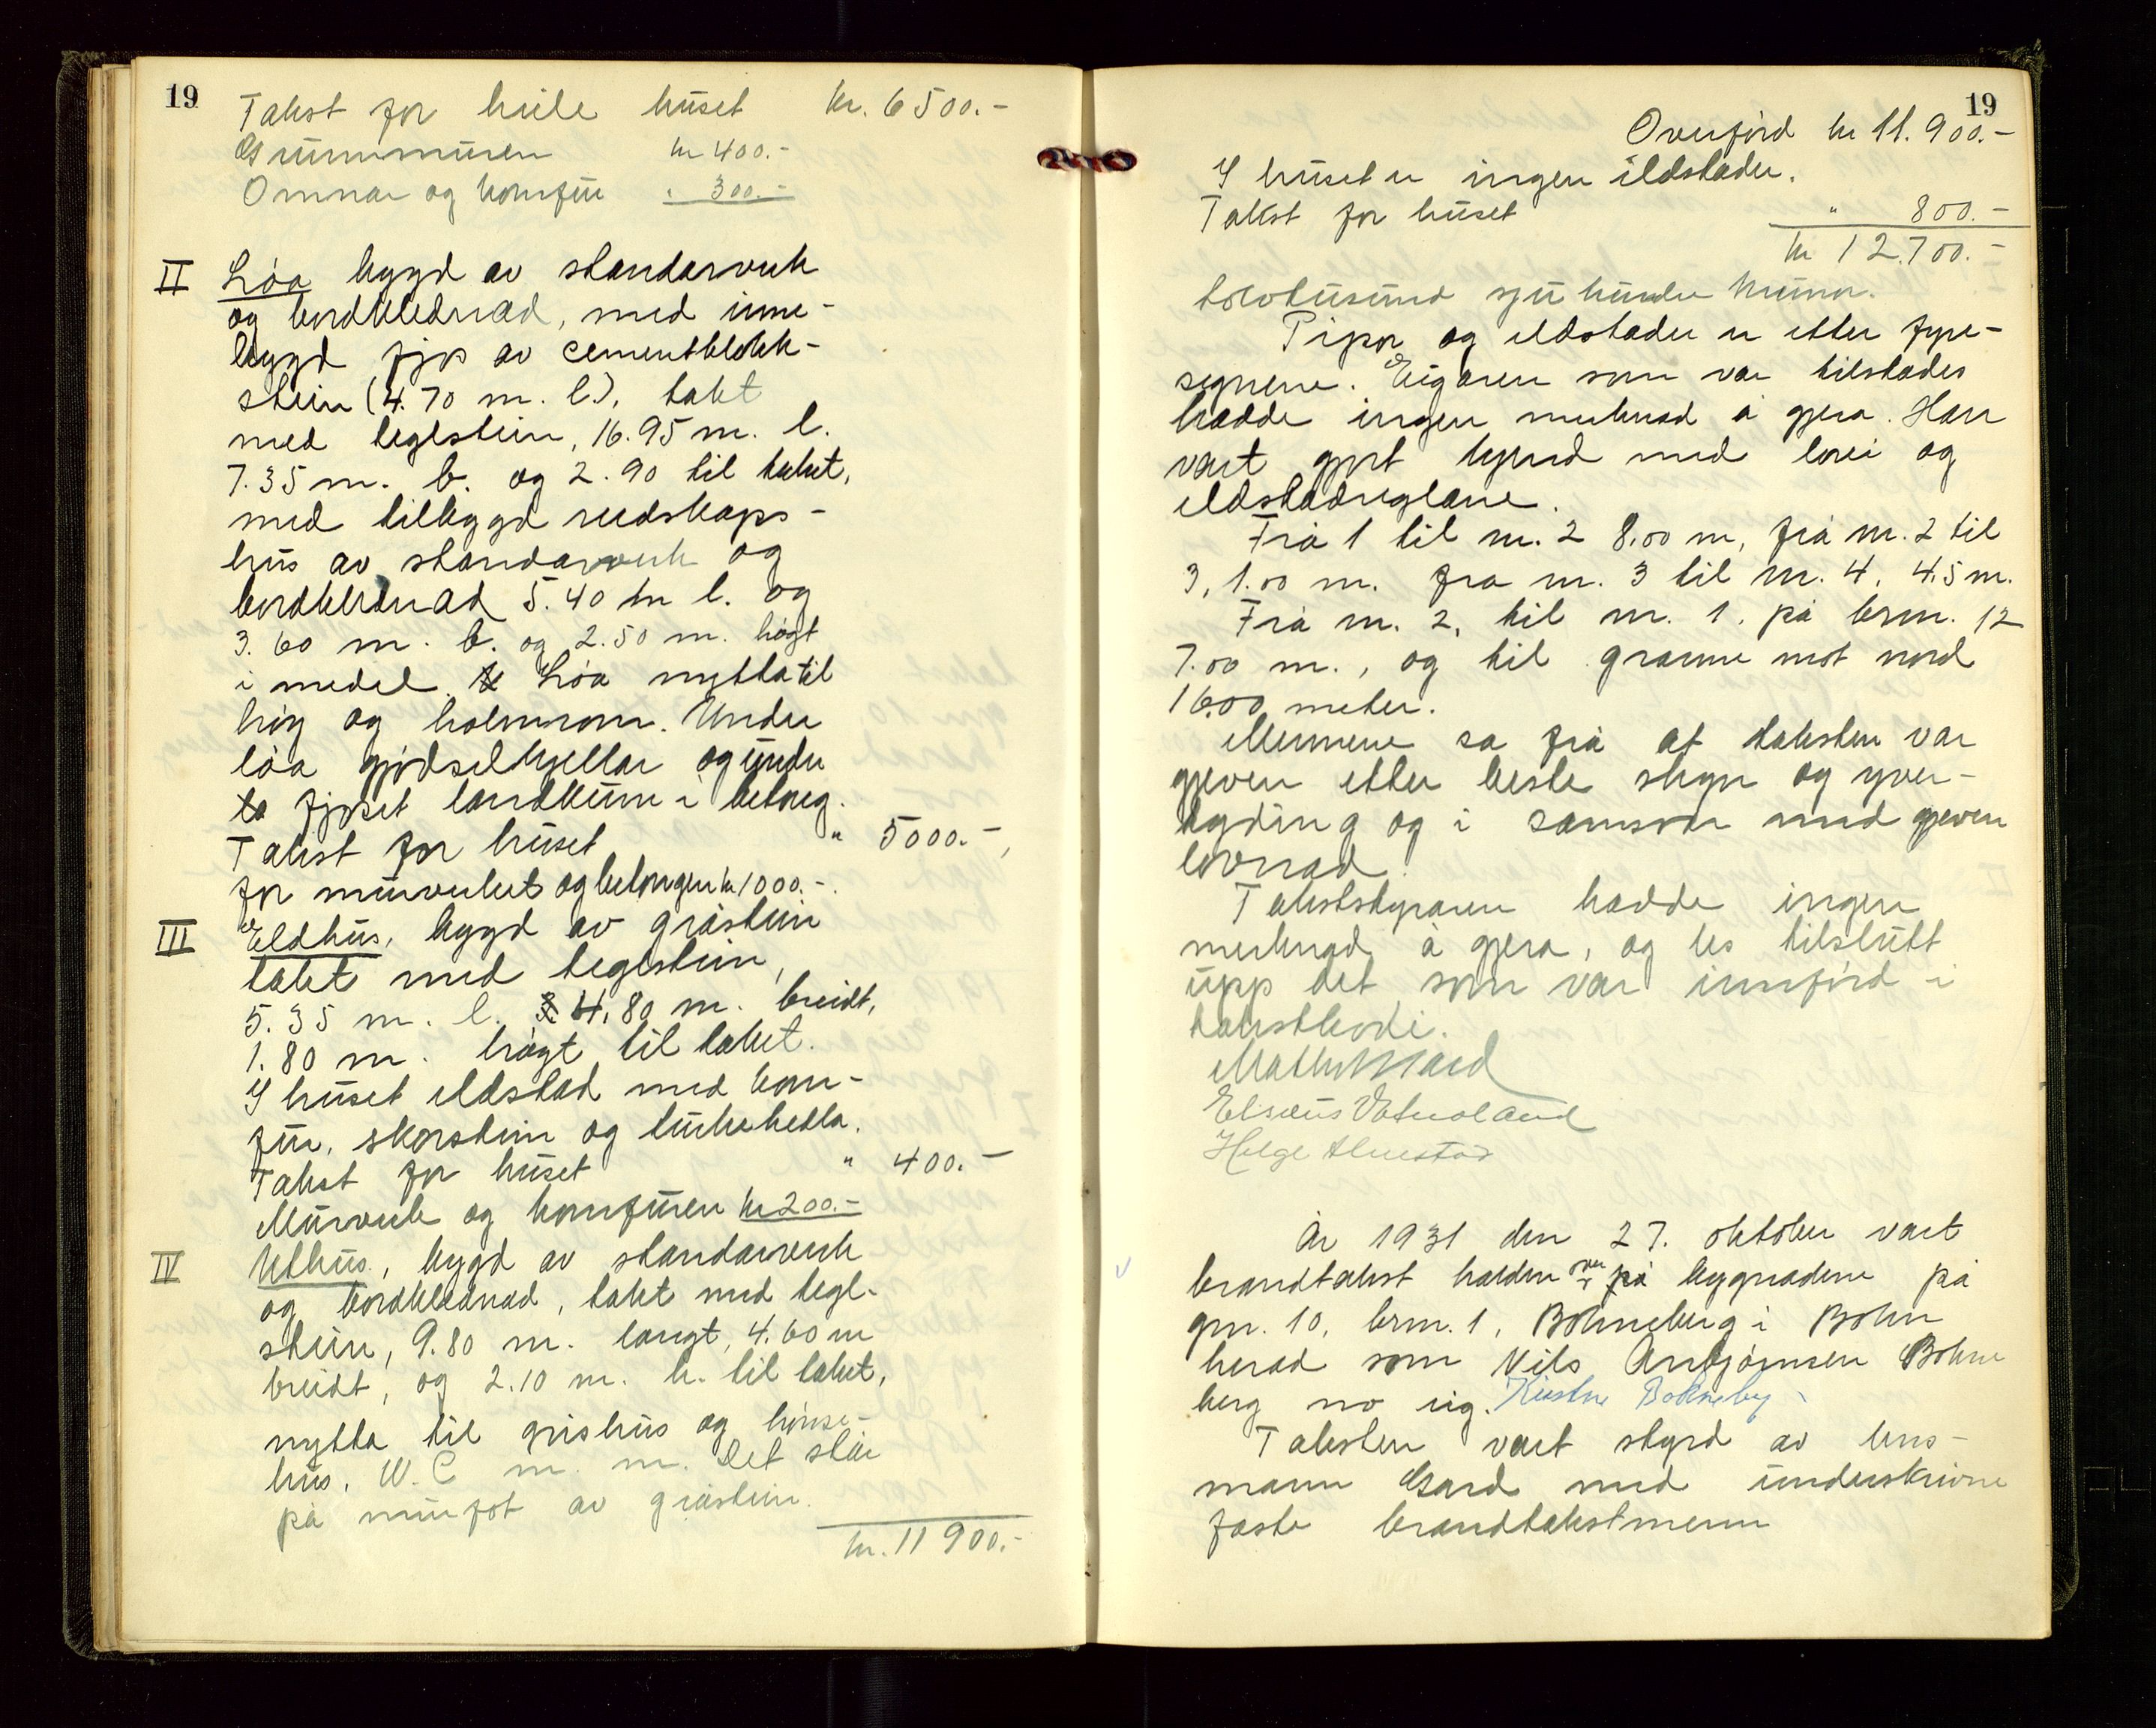 19
Takst for heile huset kr. 6500.-
Grunnmuren kr 400.-
Omnar og komfur " 300.-
II Løa bygd av standarverk
og bordklednad, med inne-
bygd fjos av cementblokk-
stein (4.70 m. l.), takt
med teglstein, 16.95 m. l.
7.35 m. b. og 2.90 til taket,
med tilbygd reidskaps-
hus av standarverk og
bordklednad 5.40 m l. og
3.60 m. b. og 2.50 m. høgt
i medel. Løa nytta til
høy og halmrom. Under
løa gjødselkjellar og under
fjoset landkum i betong.
Takst for huset " 5000.-,
for murverket og betongen kr 1000.-.
III Eldhus, bygd av gråstein
takt med teglstein,
5.35 m. l. 4.80 m. breidt,
1.80 m. høgt til taket.
I huset eldstad med kom-
fur, skorstein og turkehetta.
Takst for huset " 400.-
Murverk og komfuren kr 200.-
IV Uthus, bygd av standarverk
og bordklednad, takt med tegl-
stein, 9.80 m. langt, 4.60 m
breidt, og 2.10 m. h. til taket,
nytta til grishus og hønse-
hus, W.C m. m. Det står
på murfot av gråstein.
kr. 11 900.-
19
Overførd kr 11.900.-
I huset er ingen ildstader.
Takst for huset " 800.-
kr 12.700.-
tolvtusund sju hundre kronor.
Pipor og eldstader er etter fyre-
segnene. Eigaren som var tilstades
hadde ingen merknad å gjera. Han
vart gjort kjend med lovi og
eldstadreglane.
Frå 1 til nr. 2 8.00 m, frå nr. 2 til
3, 1.00 m. fra nr. 3 til nr. 4, 4.5 m.
Frå nr. 2, til nr. 1, på brn. 12
7.00 m., og til granne mot nord
16.00 meter.
Mennene sa frå at taksten var
gjeven etter beste skyn og yver-
tyding og i samsvar med gjeven
lovnad.
Takststyraren hadde ingen
merknad å gjera, og les tilslutt
upp det som var innførd i
takstboki.
Elisæus Vatnaland
Helge
År 1931 den 27. oktober vart
brandtakst halden over på bygnadene på
gnr. 10, brn. 1, Bokneberg i Bokn
herad som Nils Anbjørnsen Bokne
berg no eig. Kirsten Bokneberg
Taksten vart styrd av lens-
mann Gard med underskrivne
faste brandtakstmenn